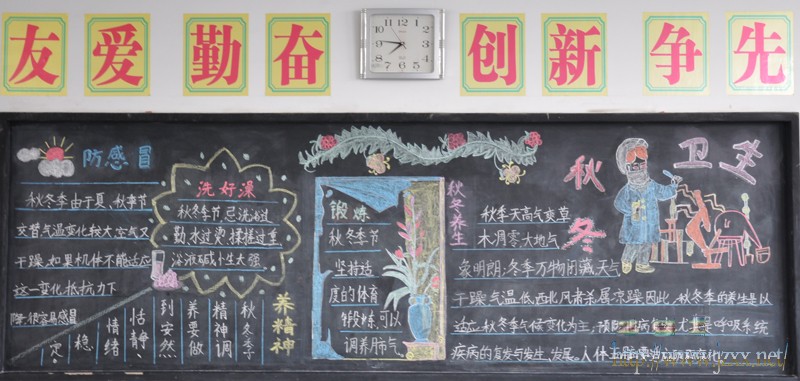 友爱 勤奋 创新 争先
防感冒
秋冬季由于夏、秋季节
交替气温变化较大,空气又
干燥,如果机体不能适应
这一变化,抵抗力下
降,很容易感冒
洗好澡
秋冬季节忌洗浴过
勤,水过烫,揉搓过重,
浴液碱小生大强
养精神
秋冬季
精神调
养要做
到安然
恬静,
情绪
稳
定
锻炼
秋冬季节
坚持适
度的体育
锻炼,可以
调养肺气
秋冬养生
秋冬
卫生
秋季天高气爽,草
木凋零,大地气
象明朗;冬季万物闭藏,天气
干燥,气温低,西北风肃杀属凉燥因此,秋冬季的养生是以
适应秋冬季气候变化为主,预防
尤其是呼吸系统
疾病的复发与发生、发展。人体